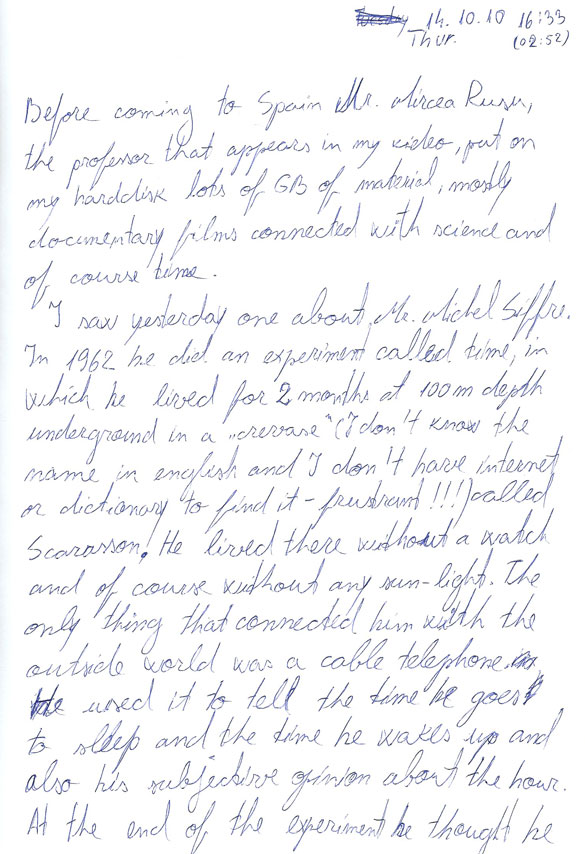 Tuesday 14.10.10 16:33
Thur. (02:52)
Before coming to Spain Mr. Mircea Rusu,
the professor that appears in my video, put on
my harddisk lots of GB of material, mostly
documentary films connected with science and
of course time.
I saw yesterday one about Mr. Michel Siffre.
In 1962 he did an experiment called time, in
which he lived for 2 months at 100m depth
underground in a „crevase" (I don't know the
name in english and I don't have internet
or dictionary to find it - frustrant!!!) called
Scarasson. He lived there without a watch
and of course without any sun-light. The
only thing that connected him with the
outside world was a cable telephone.
He used it to tell the time he goes
to sleep and the time he wakes up and
also his subjective opinion about the hour.
At the end of the experiment he thought he